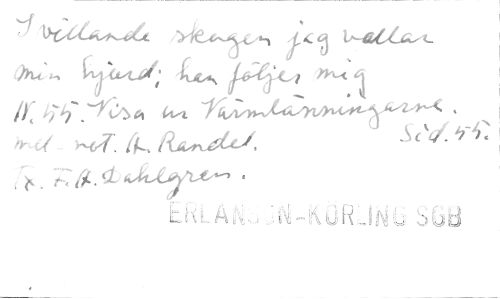 I villande skogen jag vallar
min hjord; han följer mig
N. 55. Visa ur Värmlänningarne.
mel. not. A. Randel. Sid. 55.
Tx. F. A. Dahlgren.
ERLANSON-KÖRLING SGB